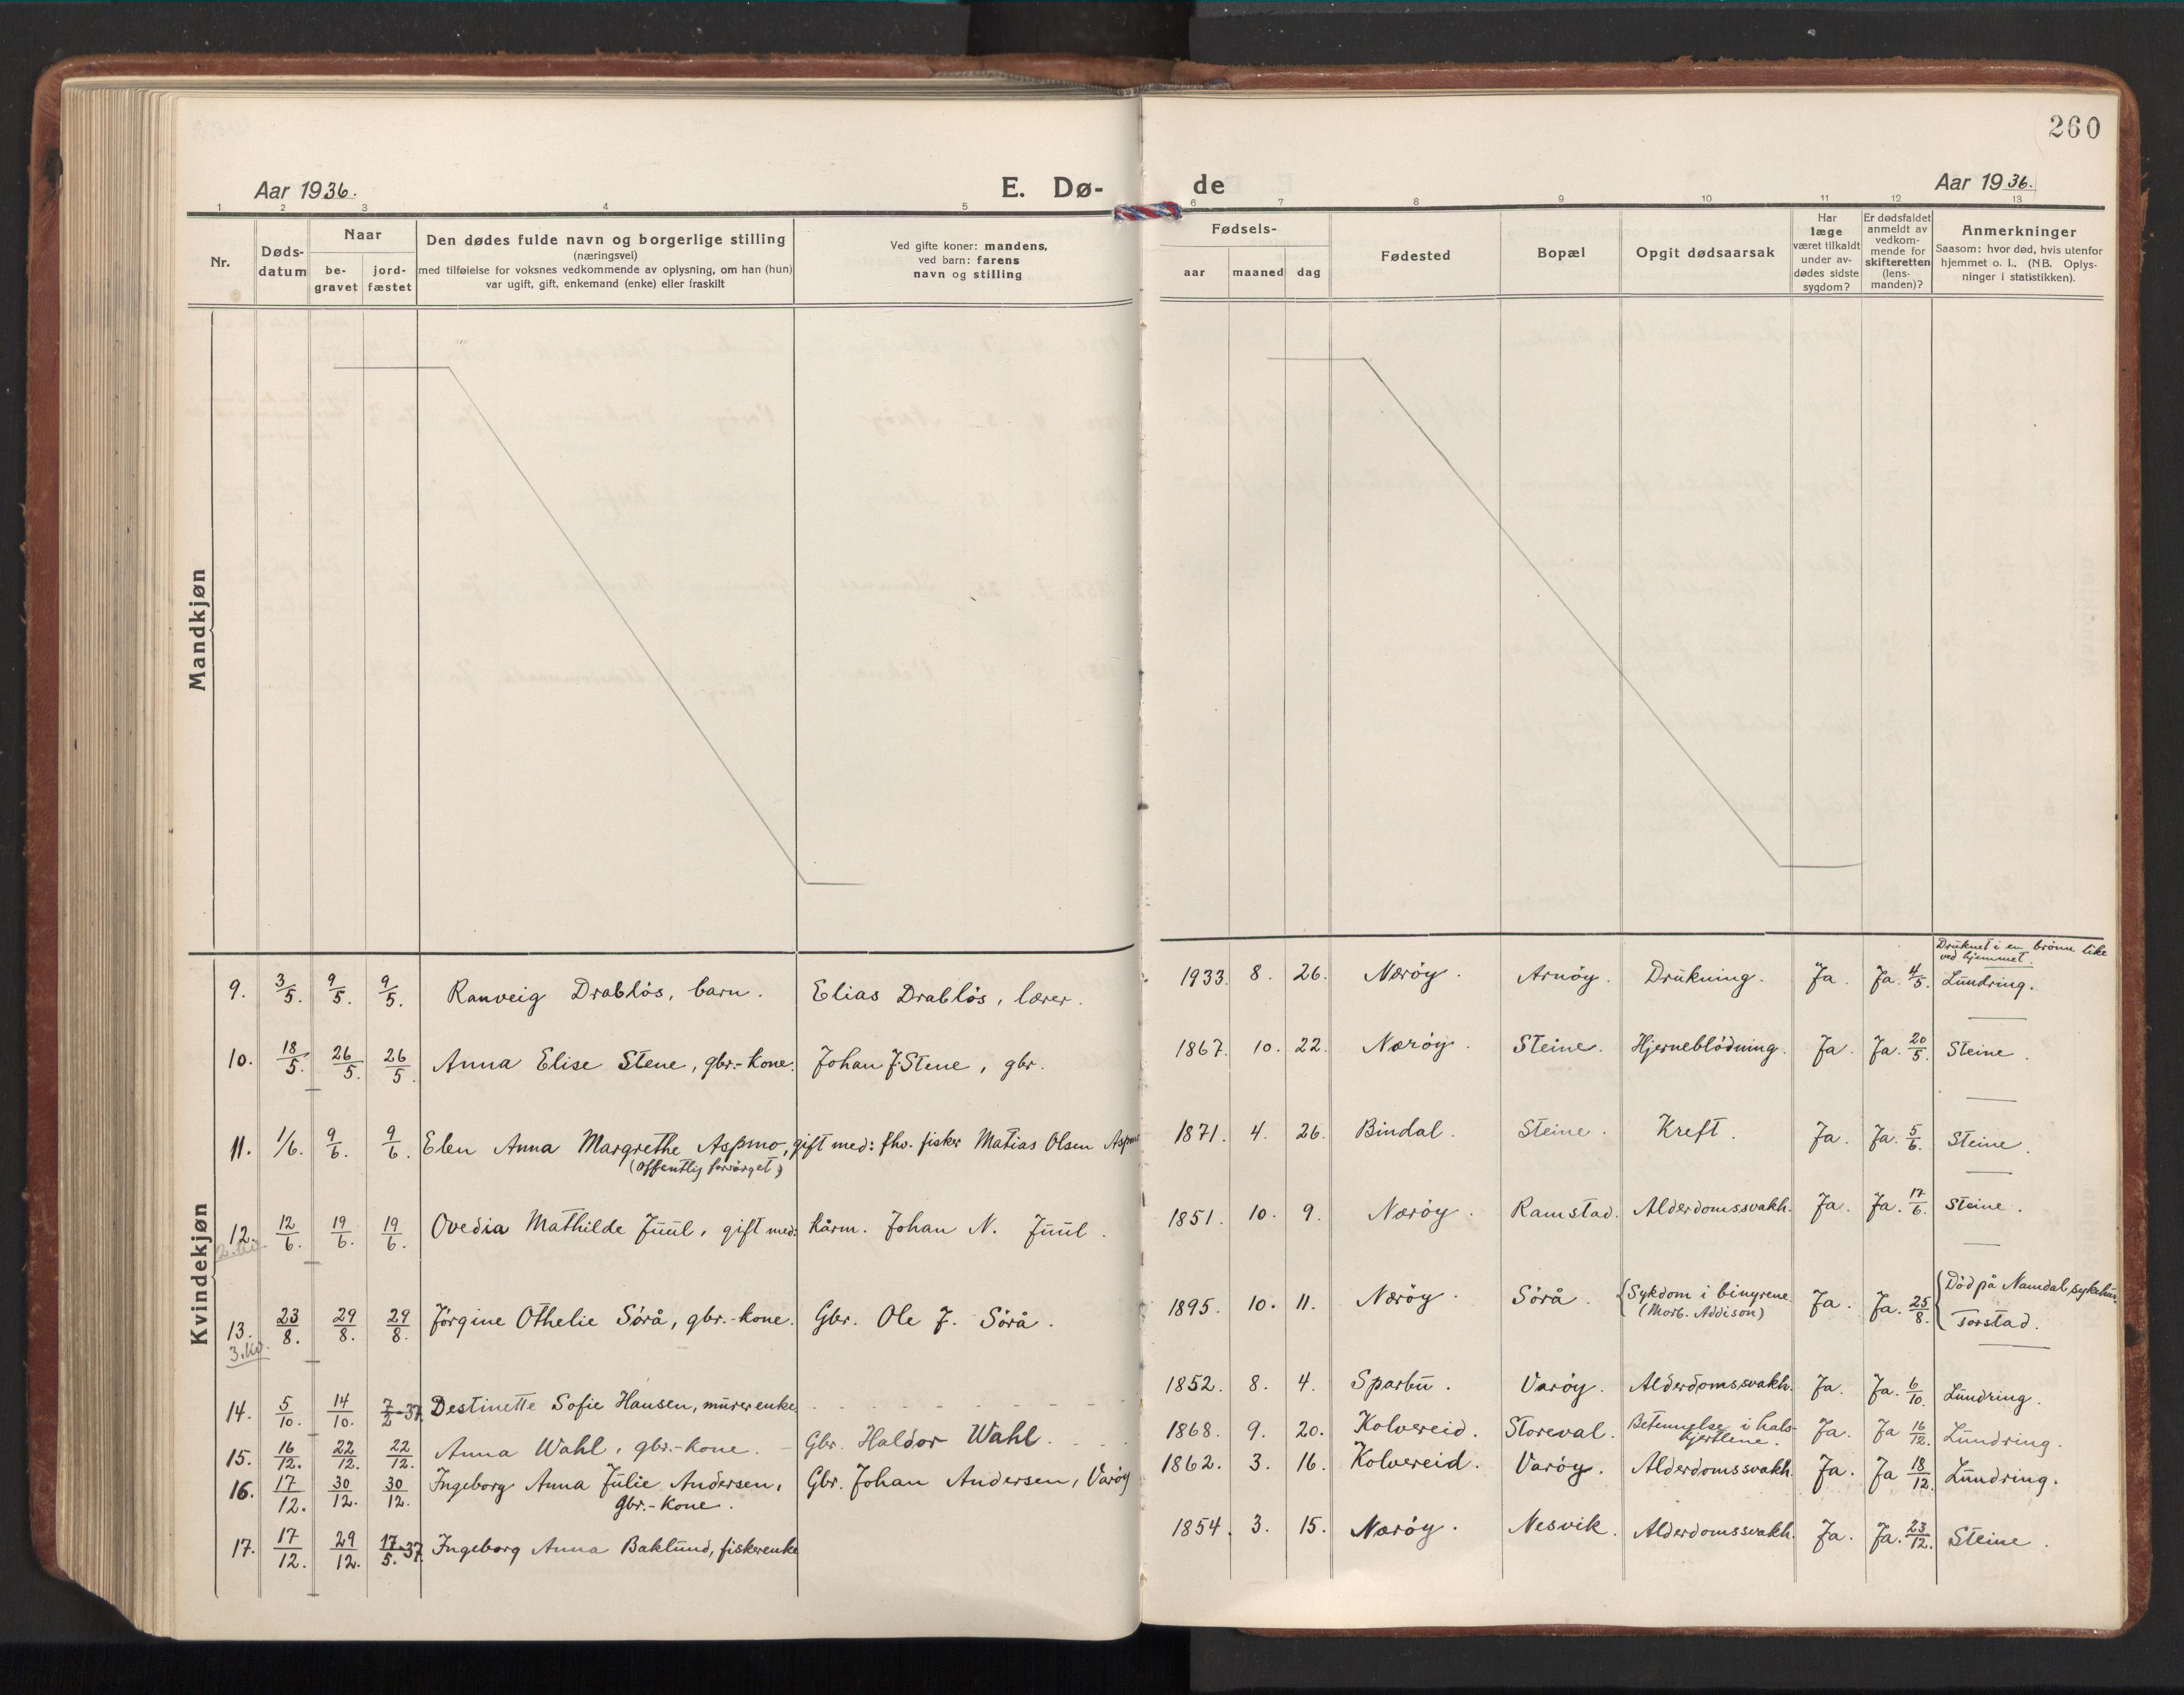 260
Aar 1936.
E. Dø-
de
Aar 1936.
1 2 3 4 5 6 7 8 9 10 11 12 13
Nr.
Døds-
datum
Naar
be-
gravet
jord-
fæstet
Den dødes fulde navn og borgerlige stilling
(næringsvei)
med tilføielse for voksnes vedkommende av oplysning, om han (hun)
var ugift, gift, enkemand (enke) eller fraskilt
Ved gifte koner: mandens,
ved barn: farens
navn og stilling
Fødsels-
aar maaned dag
Fødested
Bopæl
Opgit dødsaarsak
Har
læge
været tilkaldt
under av-
dødes sidste
sygdom?
Er dødsfaldet
anmeldt av
vedkom-
mende for
skifteretten
(lens-
manden)?
Anmerkninger
Saasom: hvor død, hvis utenfor
hjemmet o. l., (NB. Oplys-
ninger i statistikken).
Mandkjøn
Kvindekjøn
Druknet i en brönn like
ved hjemmet.
9. 3/5. 9/5. 9/5. Ranveig Drabløs, barn. Elias Drabløs, lærer. 1933. 8. 26. Nærøy. Arnøy. Drukning. Ja. Ja. 4/5. Lundring.
10. 18/5. 26/5. 26/5. Anna Elise Stene, gbr.-kone. Johan J. Stene, gbr. 1867. 10. 22. Nærøy. Steine. Hjerneblödning. Ja. Ja. 20/5. Steine.
11. 1/6. 9/6. 9/6. Elen Anna Margrethe Aspmo, gift med: fhv. fisker Matias Olsen Aspmo 1871. 4. 26. Bindal. Steine. Kreft. Ja. Ja. 5/6. Steine.
(offentlig forsörget)
12. 12/6. 19/6. 19/6. Ovedia Mathilde Juul, gift med: kårm. Johan N. Juul. 1851. 10. 9. Nærøy. Ramstad. Alderdomssvakh. Ja. Ja. 17/6. Steine.
13. 23/8. 29/8. 29/8. Jörgine Othelie Sörå, gbr.-kone. Gbr. Ole J. Sörå. 1895. 10. 11. Nærøy. Sörå. Sykdom i binyrene. Ja. Ja. 25/8. Död på Namdal sykehus.
3. kv.
(Morb. Addison)
Torstad.
14. 5/10. 14/10. 7/2-37. Destinette Sofie Hansen, murerenke 1852. 8. 4. Sparbu. Varøy. Alderdomssvakh. Ja. Ja. 6/10. Lundring.
15. 16/12. 22/12. 22/12. Anna Wahl, gbr.-kone. Gbr. Haldor Wahl. 1868. 9. 20. Kolvereid. Storeval. Betennelse i hals-
kjertlene. Ja. Ja 16/12. Lundring.
16. 17/12. 30/12. 30/12. Ingeborg Anna Julie Andersen, Gbr. Johan Andersen, Varøy 1862. 3. 16. Kolvereid. Varøy. Alderdomssvakh. Ja. Ja 18/12. Lundring.
gbr.-kone.
17. 17/12. 29/12. 17/5.-37. Ingeborg Anna Baklund, fiskerenke 1854. 3. 15. Nærøy. Nesvik. Alderdomssvakh. Ja. Ja. 23/12. Steine.